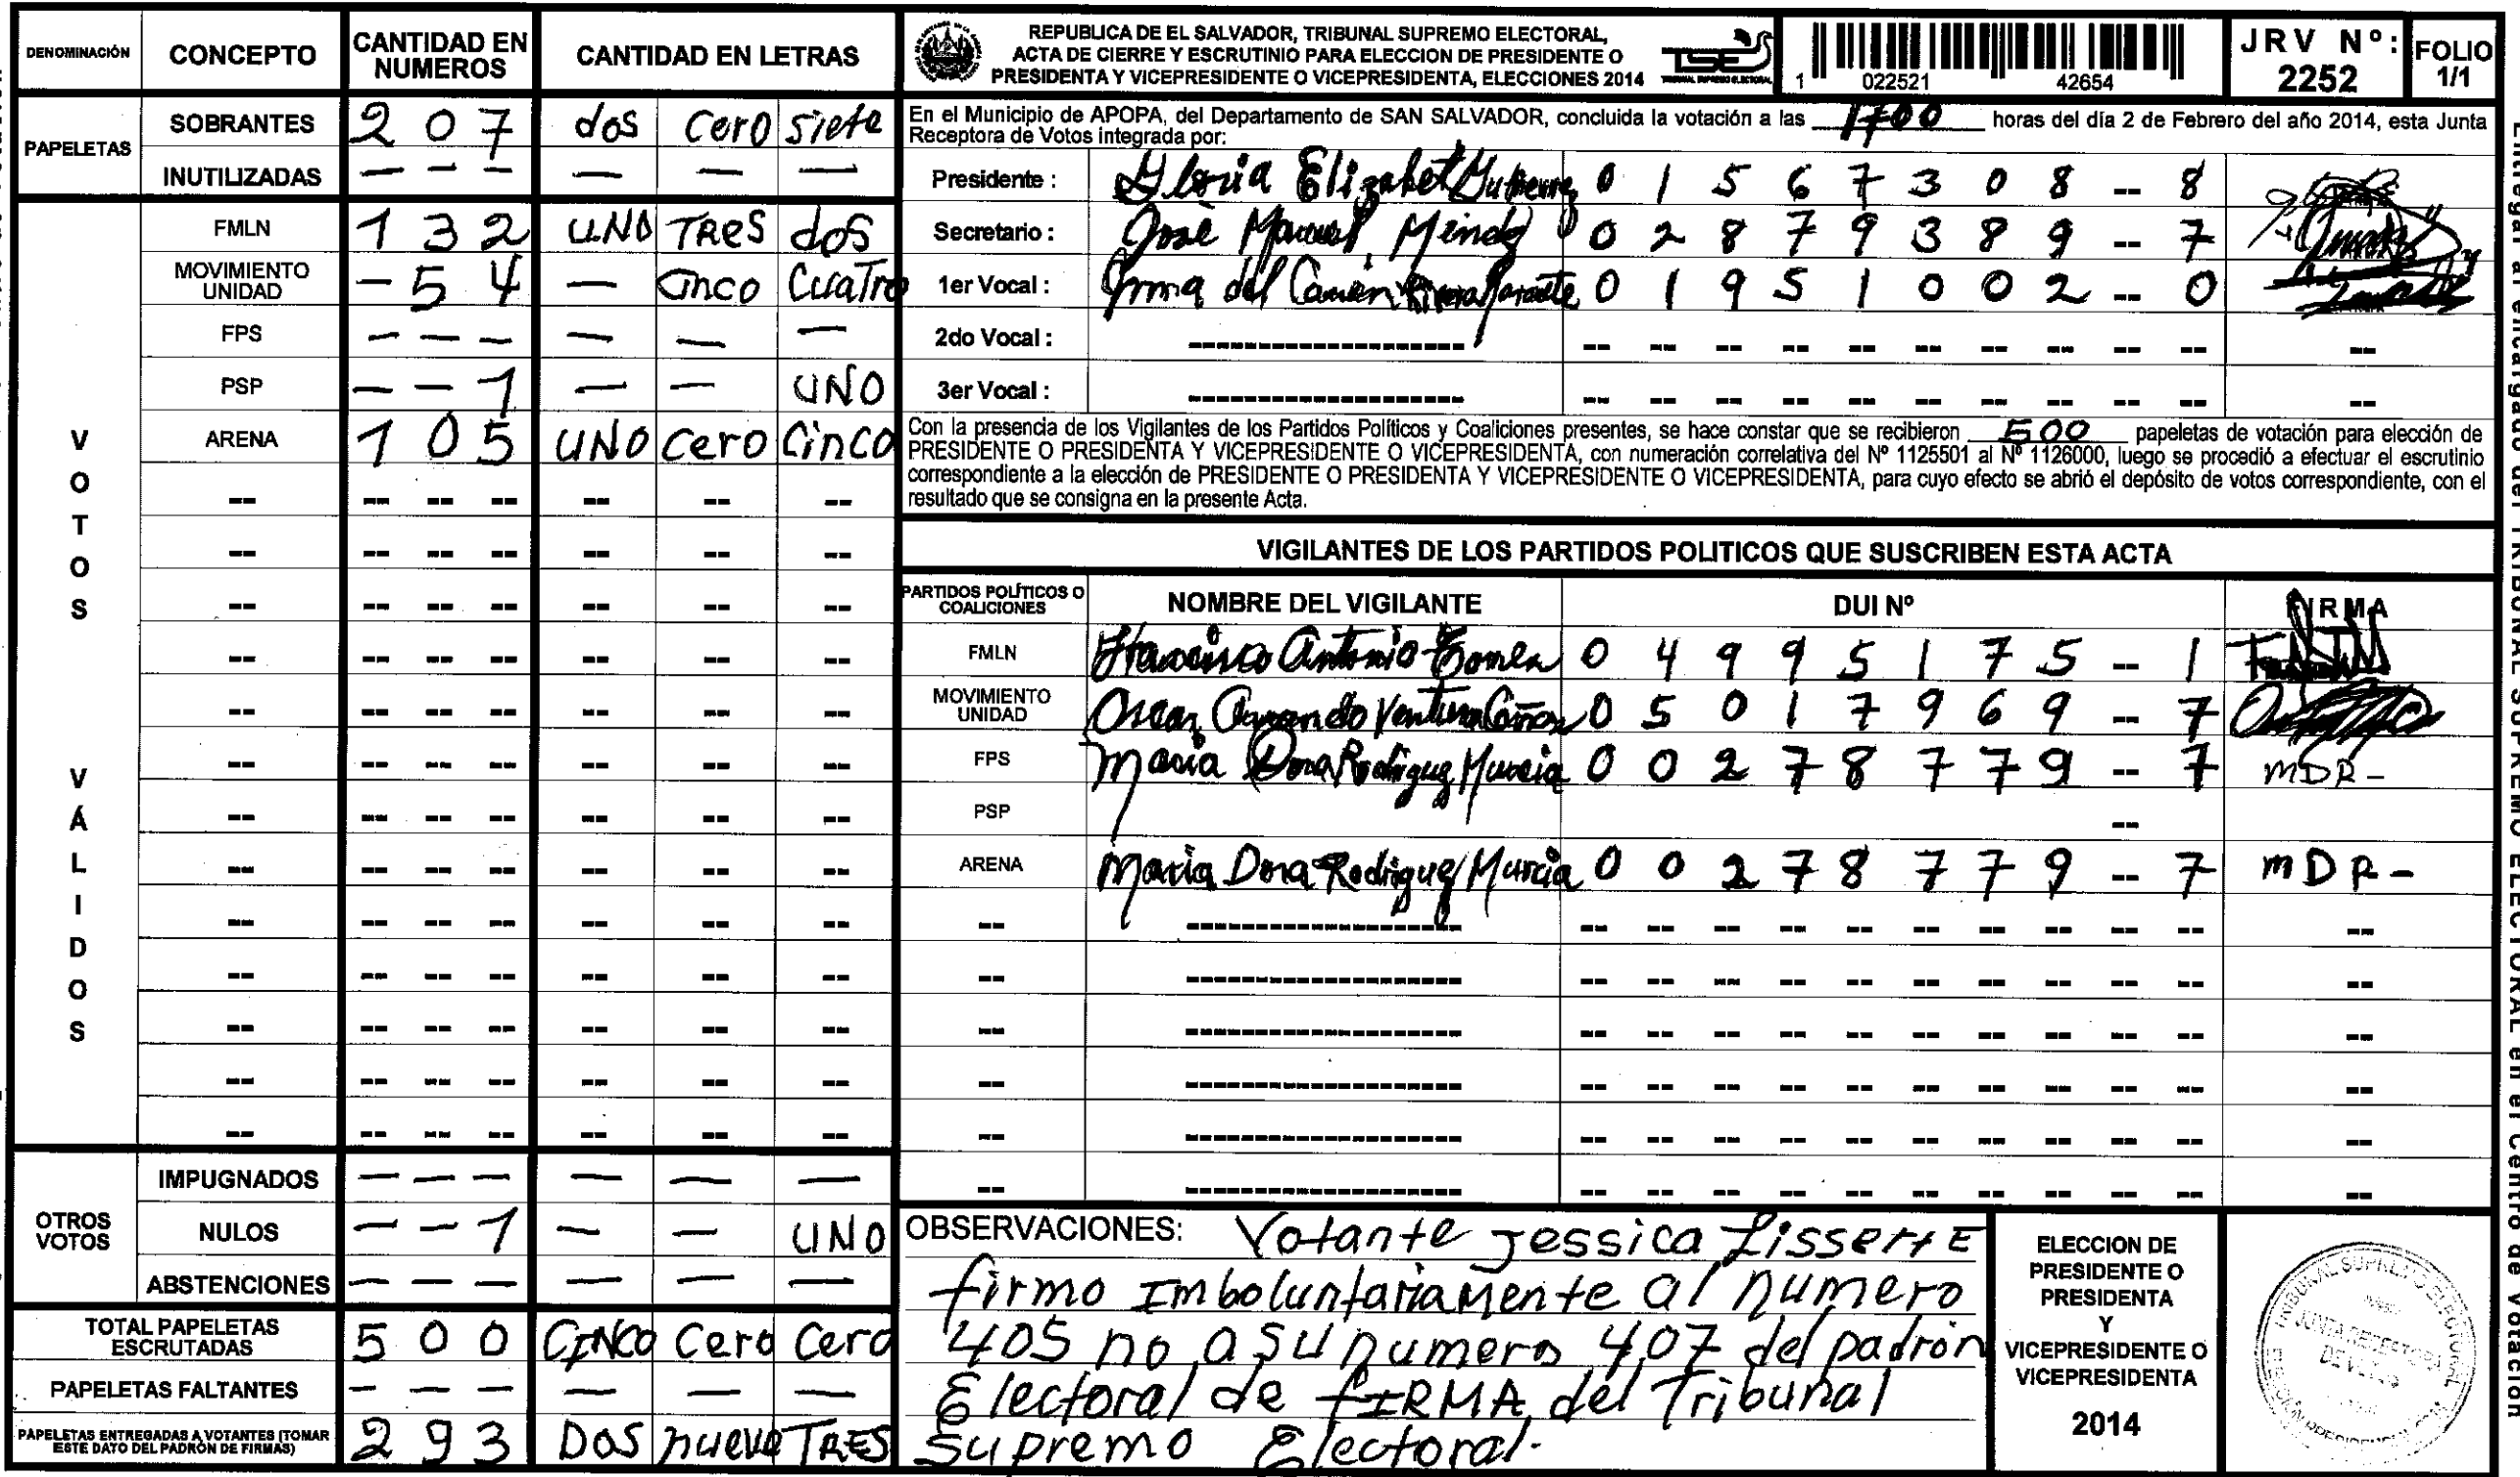 DENOMINACIÓN CONCEPTO CANTIDAD EN NUMEROS CANTIDAD EN LETRAS
PAPELETAS
SOBRANTES 2 0 7 dos cero siete
INUTILIZADAS — — — — — —
VOTOS VÁLIDOS
FMLN 1 3 2 UNO TRES dos
MOVIMIENTO UNIDAD — 5 4 — Cinco Cuatro
FPS — — — — — —
PSP — — 1 — — UNO
ARENA 1 0 5 UNO cero Cinco
-- -- -- -- -- -- --
-- -- -- -- -- -- --
-- -- -- -- -- -- --
-- -- -- -- -- -- --
-- -- -- -- -- -- --
-- -- -- -- -- -- --
-- -- -- -- -- -- --
-- -- -- -- -- -- --
-- -- -- -- -- -- --
-- -- -- -- -- -- --
-- -- -- -- -- -- --
-- -- -- -- -- -- --
-- -- -- -- -- -- --
OTROS VOTOS
IMPUGNADOS — — — — — —
NULOS — — 1 — — UNO
ABSTENCIONES — — — — — —
TOTAL PAPELETAS ESCRUTADAS 5 0 0 CINCO Cero Cero
PAPELETAS FALTANTES — — — — — —
PAPELETAS ENTREGADAS A VOTANTES (TOMAR ESTE DATO DEL PADRÓN DE FIRMAS) 2 9 3 DOS nueve TRES
REPUBLICA DE EL SALVADOR, TRIBUNAL SUPREMO ELECTORAL,
ACTA DE CIERRE Y ESCRUTINIO PARA ELECCION DE PRESIDENTE O
PRESIDENTA Y VICEPRESIDENTE O VICEPRESIDENTA, ELECCIONES 2014
TSE
TRIBUNAL SUPREMO ELECTORAL
1 022521 42654
JRV Nº: 2252
FOLIO 1/1
En el Municipio de APOPA, del Departamento de SAN SALVADOR, concluida la votación a las 1700 horas del día 2 de Febrero del año 2014, esta Junta
Receptora de Votos integrada por:
Presidente : Gloria Elizabet Gutierrez 0 1 5 6 7 3 0 8 -- 8
Secretario : José Manuel Mendez 0 2 8 7 9 3 8 9 -- 7
1er Vocal : Irma del Carmen Rivera 0 1 9 5 1 0 0 2 -- 0
2do Vocal : ------------------- -- -- -- -- -- -- -- -- -- -- --
3er Vocal : ------------------- -- -- -- -- -- -- -- -- -- -- --
Con la presencia de los Vigilantes de los Partidos Políticos y Coaliciones presentes, se hace constar que se recibieron 500 papeletas de votación para elección de
PRESIDENTE O PRESIDENTA Y VICEPRESIDENTE O VICEPRESIDENTA, con numeración correlativa del Nº 1125501 al Nº 1126000, luego se procedió a efectuar el escrutinio
correspondiente a la elección de PRESIDENTE O PRESIDENTA Y VICEPRESIDENTE O VICEPRESIDENTA, para cuyo efecto se abrió el depósito de votos correspondiente, con el
resultado que se consigna en la presente Acta.
VIGILANTES DE LOS PARTIDOS POLITICOS QUE SUSCRIBEN ESTA ACTA
PARTIDOS POLÍTICOS O COALICIONES NOMBRE DEL VIGILANTE DUI Nº FIRMA
FMLN Francisco Antonio 0 4 9 9 5 1 7 5 -- 1
MOVIMIENTO UNIDAD Oscar Armando Ventura 0 5 0 1 7 9 6 9 -- 7
FPS Maria Dora Rodriguez Murcia 0 0 2 7 8 7 7 9 -- 7 MDR -
PSP --
ARENA Maria Dora Rodriguez Murcia 0 0 2 7 8 7 7 9 -- 7 MDR -
-- ------------------- -- -- -- -- -- -- -- -- -- -- --
-- ------------------- -- -- -- -- -- -- -- -- -- -- --
-- ------------------- -- -- -- -- -- -- -- -- -- -- --
-- ------------------- -- -- -- -- -- -- -- -- -- -- --
-- ------------------- -- -- -- -- -- -- -- -- -- -- --
-- ------------------- -- -- -- -- -- -- -- -- -- -- --
OBSERVACIONES: Votante Jessica Lissette
firmo Imboluntariamente al numero
405 no a su numero 407 del padrón
Electoral de FIRMA del Tribunal
Supremo Electoral.
ELECCION DE
PRESIDENTE O
PRESIDENTA
Y
VICEPRESIDENTE O
VICEPRESIDENTA
2014
JUNTA RECEPTORA
DE VOTOS
Entregar al encargado del TRIBUNAL SUPREMO ELECTORAL en el Centro de Votación